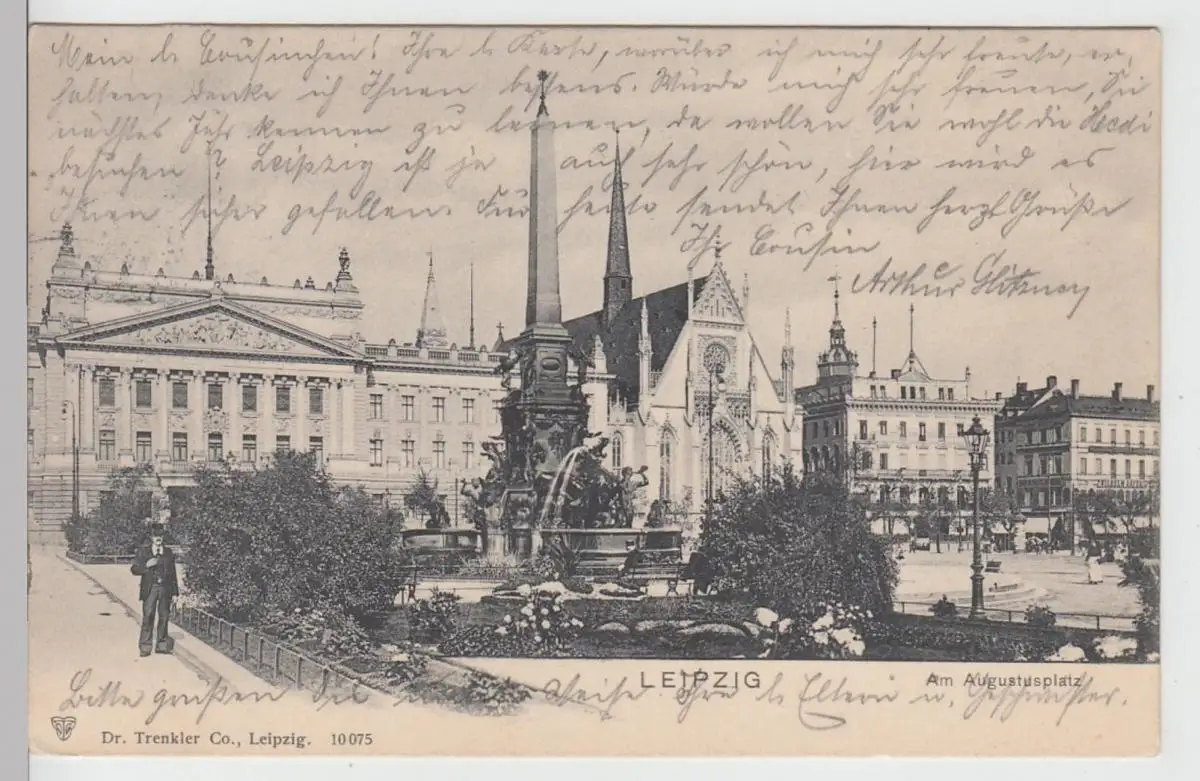 Mein l. Cousinchen! Ihre l. Karte, worüber ich mich sehr freute, er-
halten, danke ich Ihnen bestens. Würde mich sehr freuen, Sie
nächstes Jahr kennen zu lernen, da wollen Sie wohl die Hedi
besuchen? Leipzig ist ja auch sehr schön, hier wird es
Ihnen sicher gefallen. Für heute sendet Ihnen herzl. Grüße
Ihr Cousin
Arthur
Bitte grüßen Sie Ihre l. Eltern u. Geschwister.
LEIPZIG
Am Augustusplatz
Dr. Trenkler Co., Leipzig. 10075